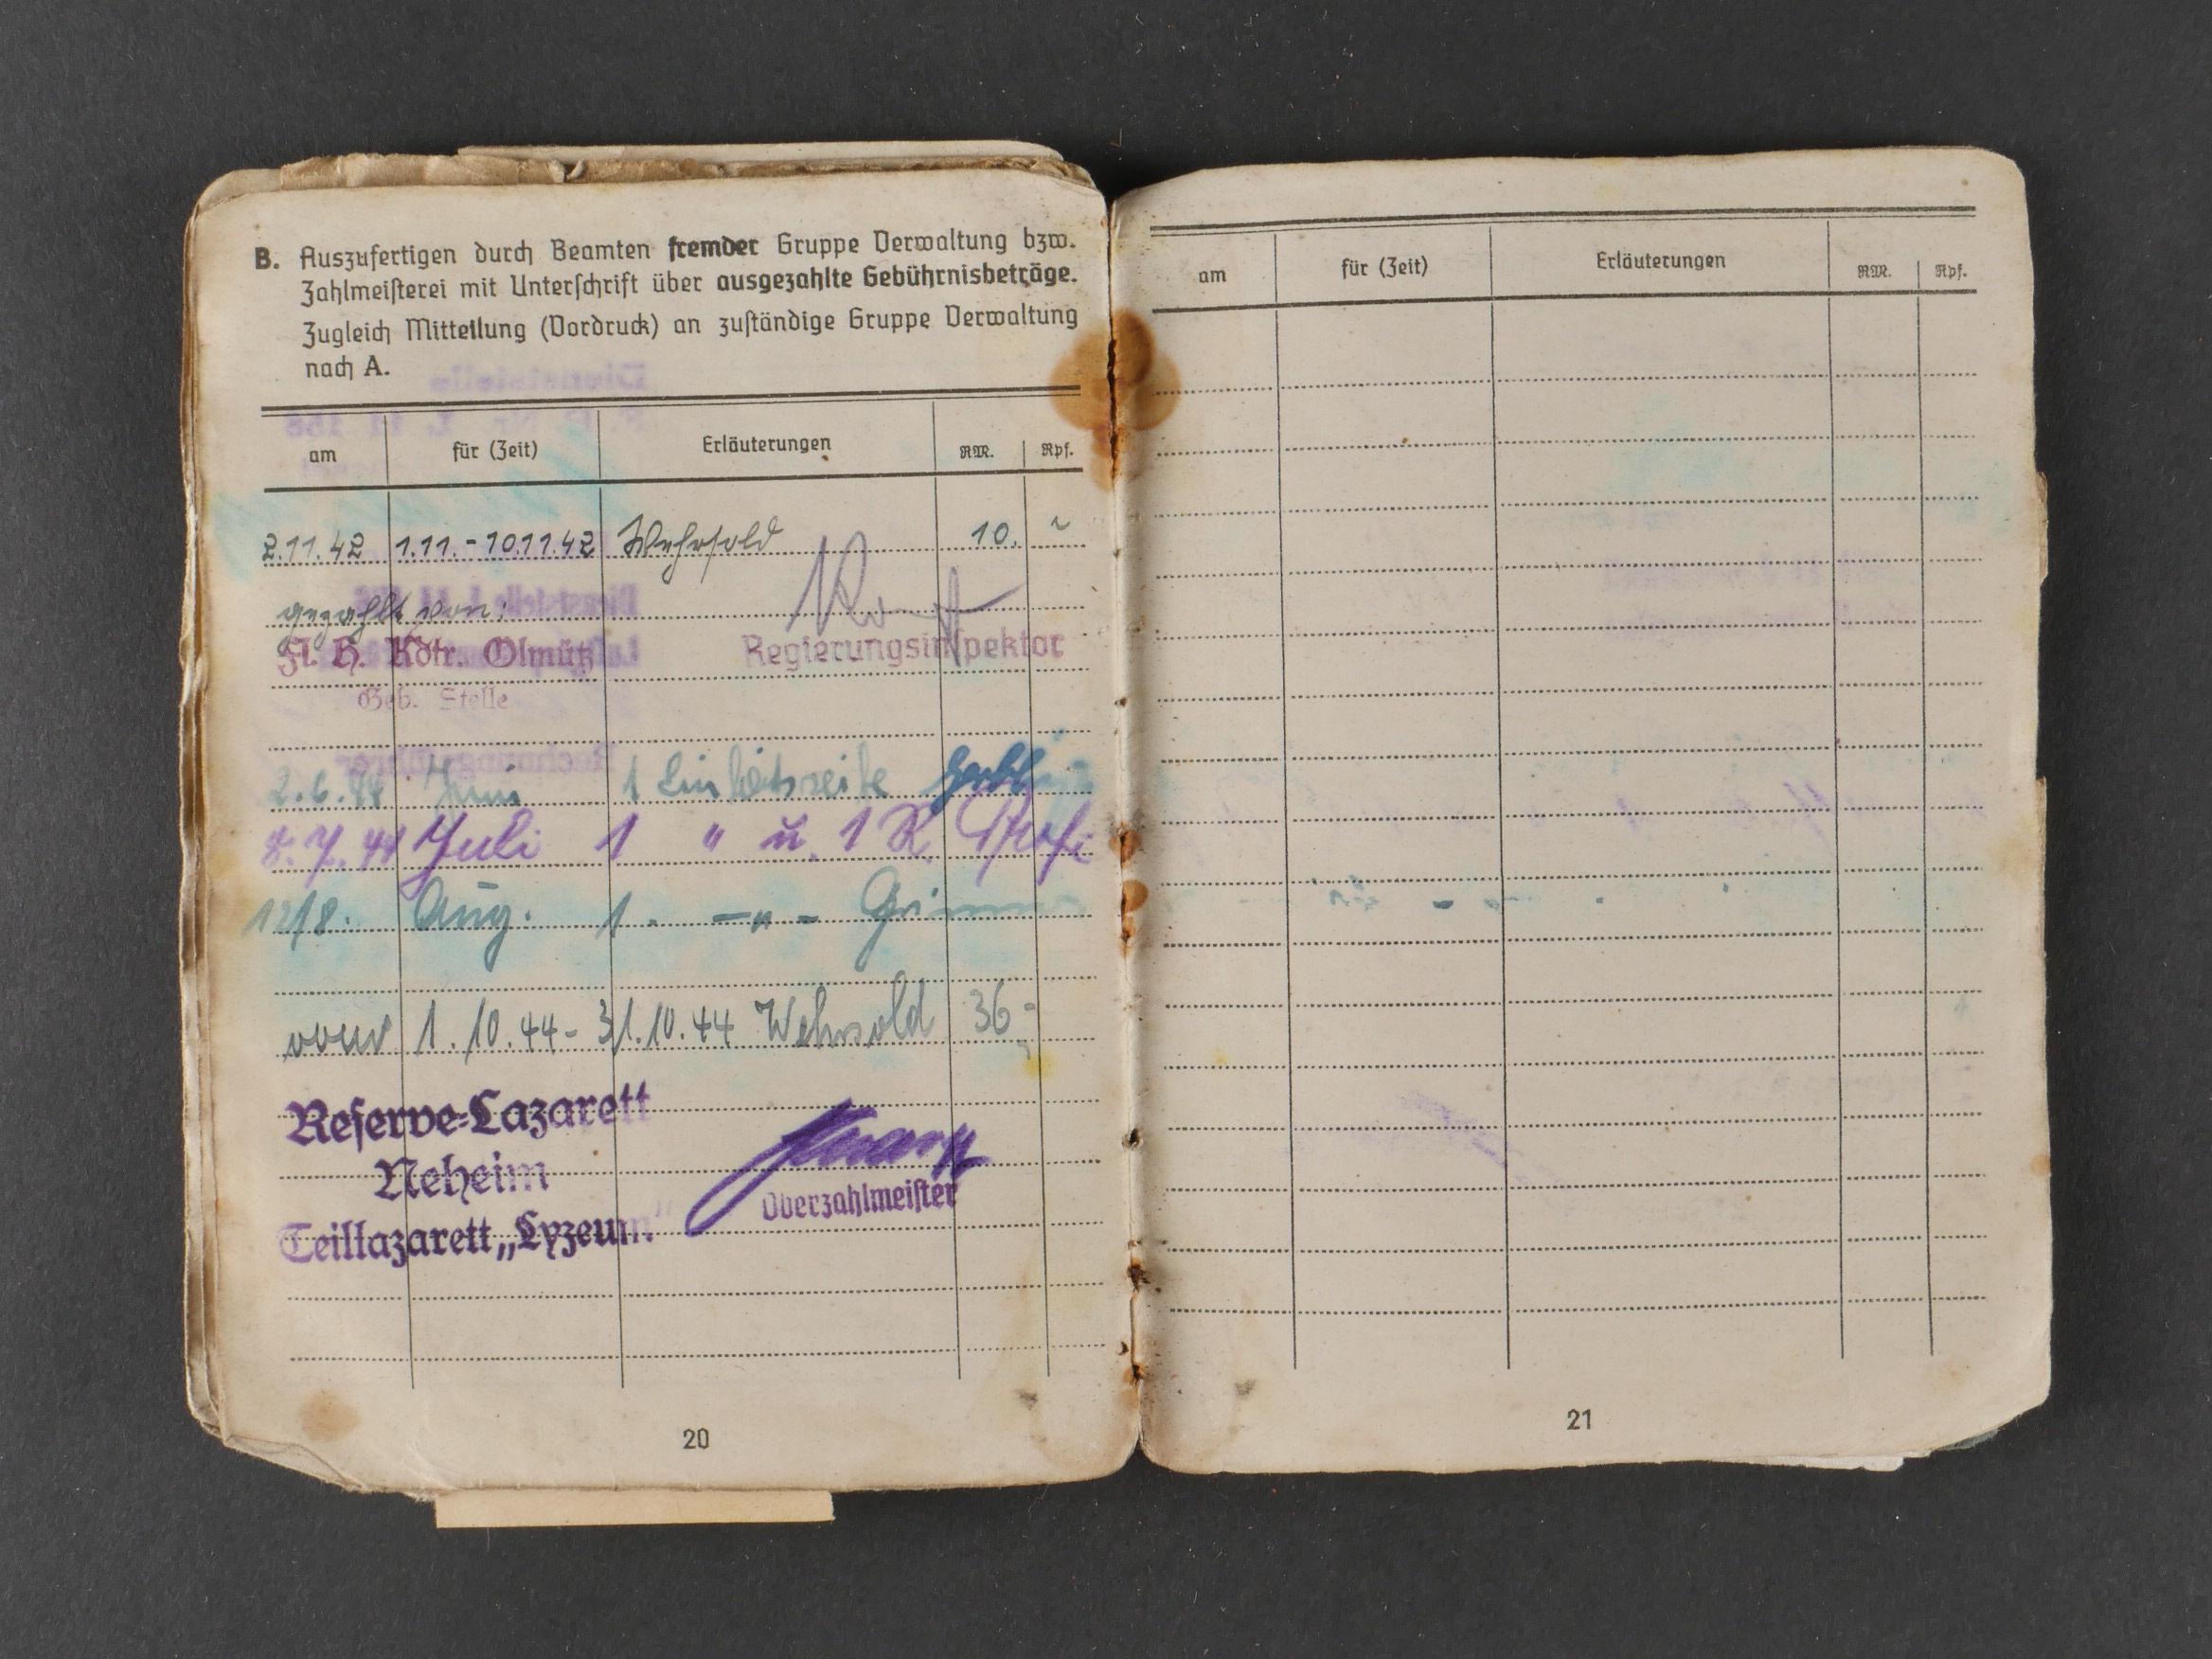 B. Auszufertigen durch Beamten fremder Gruppe Verwaltung bzw.
Zahlmeisterei mit Unterschrift über ausgezahlte Gebührnisbeträge.
Zugleich Mitteilung (Vordruck) an zuständige Gruppe Verwaltung
nach A.
am für (Zeit) Erläuterungen RM. Rpf.
2.11.42 1.11.-10.11.42 Wehrsold 10.
gezahlt von:
Fl. H. Kdtr. Olmütz Regierungsinspektor
Geb. Stelle
2.6.44 Juni 1 Einheitsseife
8.7.44 Juli 1 " u. 1 R.
12/8. Aug. 1. -"-
vom 1.10.44-31.10.44 Wehrsold 36.-
Reserve-Lazarett
Neheim
Oberzahlmeister
Teillazarett „Lyzeum"
20
am für (Zeit) Erläuterungen RM. Rpf.
21